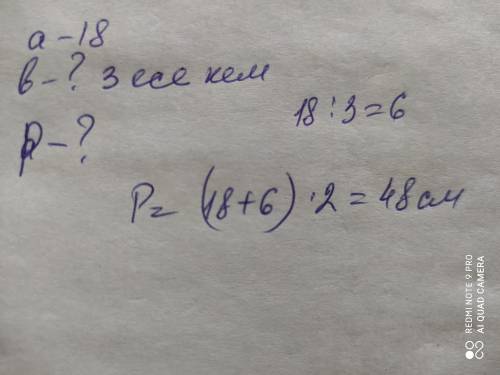 а - 18
в - ? 3 есе кем
18 : 3 = 6
P - ?
P = (18+6) · 2 = 48 см
REDMI NOTE 9 PRO
AI QUAD CAMERA